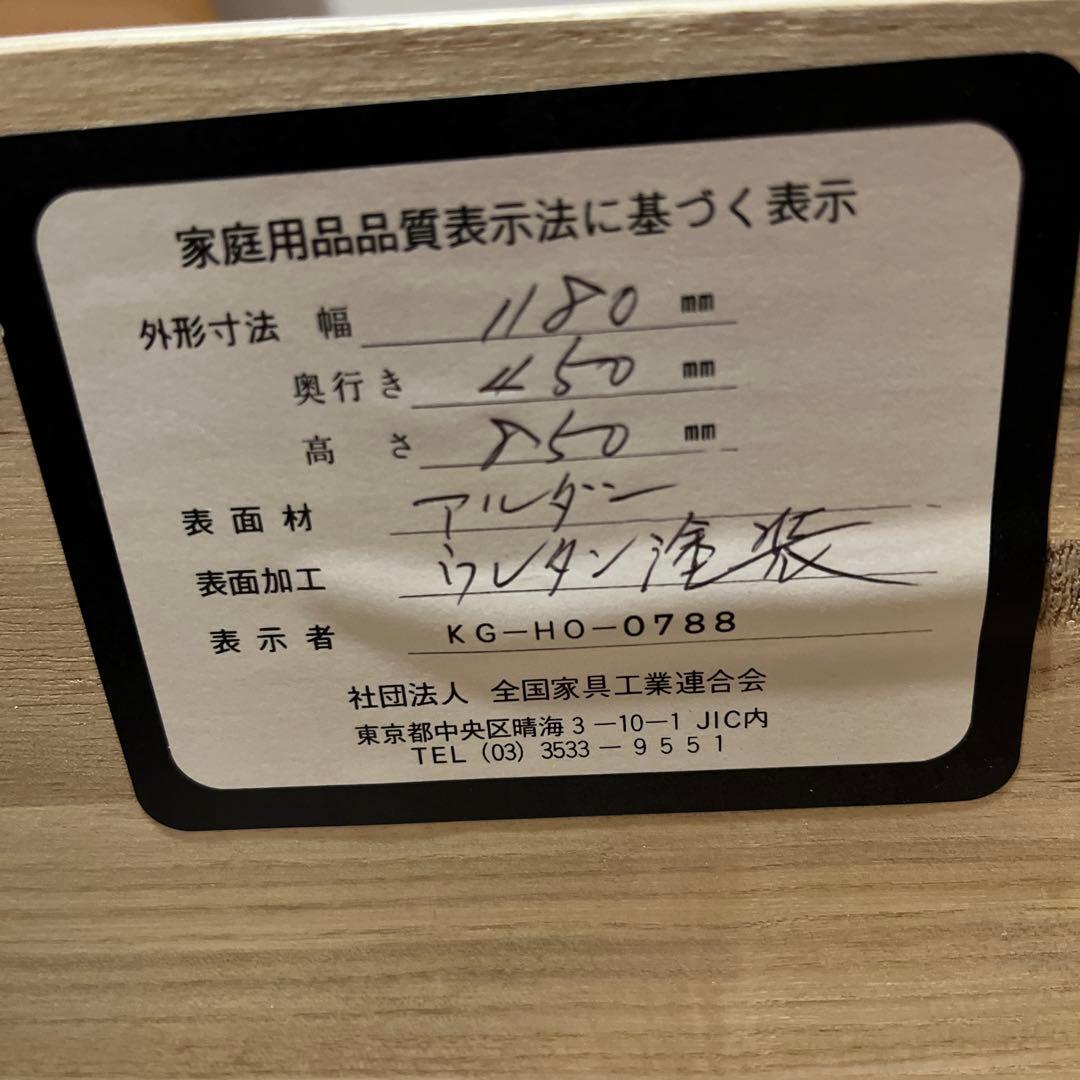 家庭用品品質表示法に基づく表示
外形寸法 幅 1180 mm
奥行き 450 mm
高さ 850 mm
表面材 アルダー
表面加工 ウレタン塗装
表示者 KG-HO-0788
社団法人 全国家具工業連合会
東京都中央区晴海3-10-1 JIC内
TEL (03) 3533-9551